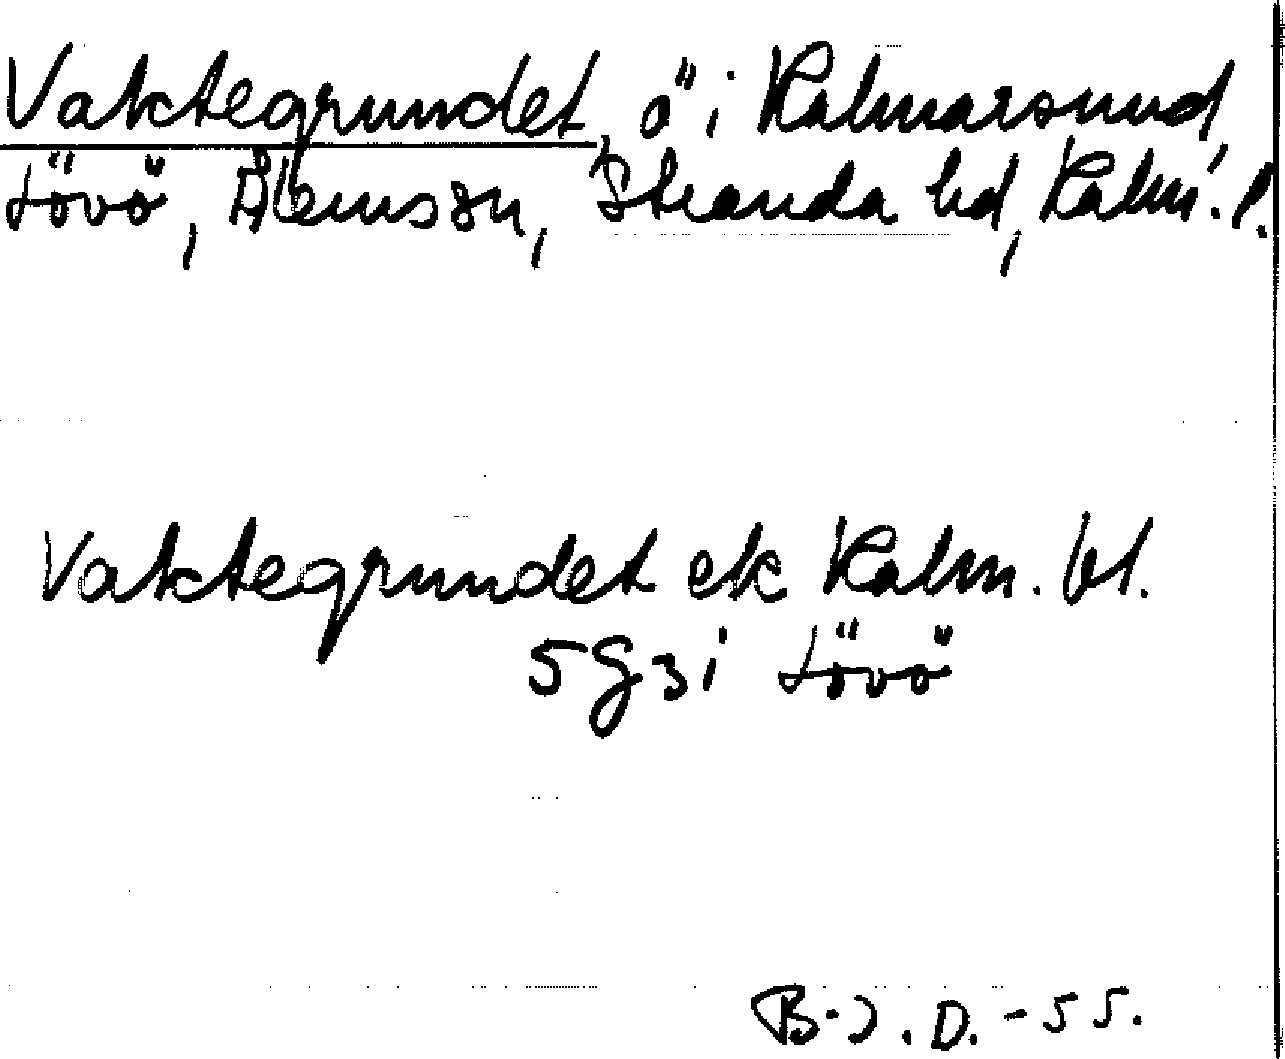 Vaktegrundet, ö i Kalmarsund,
Lövö, Ålems sn, Stranda hd, Kalm. l.
Vaktegrundet ek Kalm. bl.
5 g 3 i Lövö
B-J. D. -55.